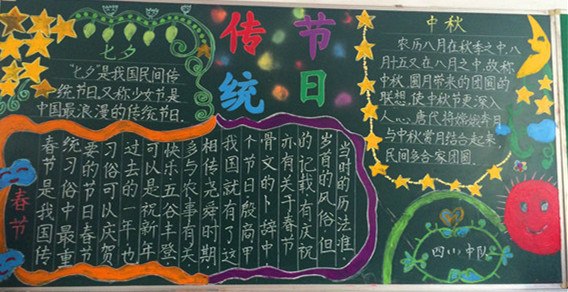 七夕
"七夕"是我国民间传
统节日又称少女节是
中国最浪漫的传统节日.
传节
统日
中秋
农历八月在秋季之中,八
月十五又在八月之中,故称
中秋.圆月带来的团圆的
联想,使中秋节更深入
人心。唐代将嫦娥奔月
与中秋赏月结合起来,
民间多合家团圆.
春节
春节是我国传
统习俗中最重
要的节日春节
习俗可以庆贺
过去的一年也
可以是祝新年
快乐五谷丰登
多与农事有关
相传尧舜时期
我国就有了这
个节日殷商甲
骨文的卜辞中
亦有关于春节
的记载有庆祝
岁首的风俗但
当时的历法准
四(1)中队